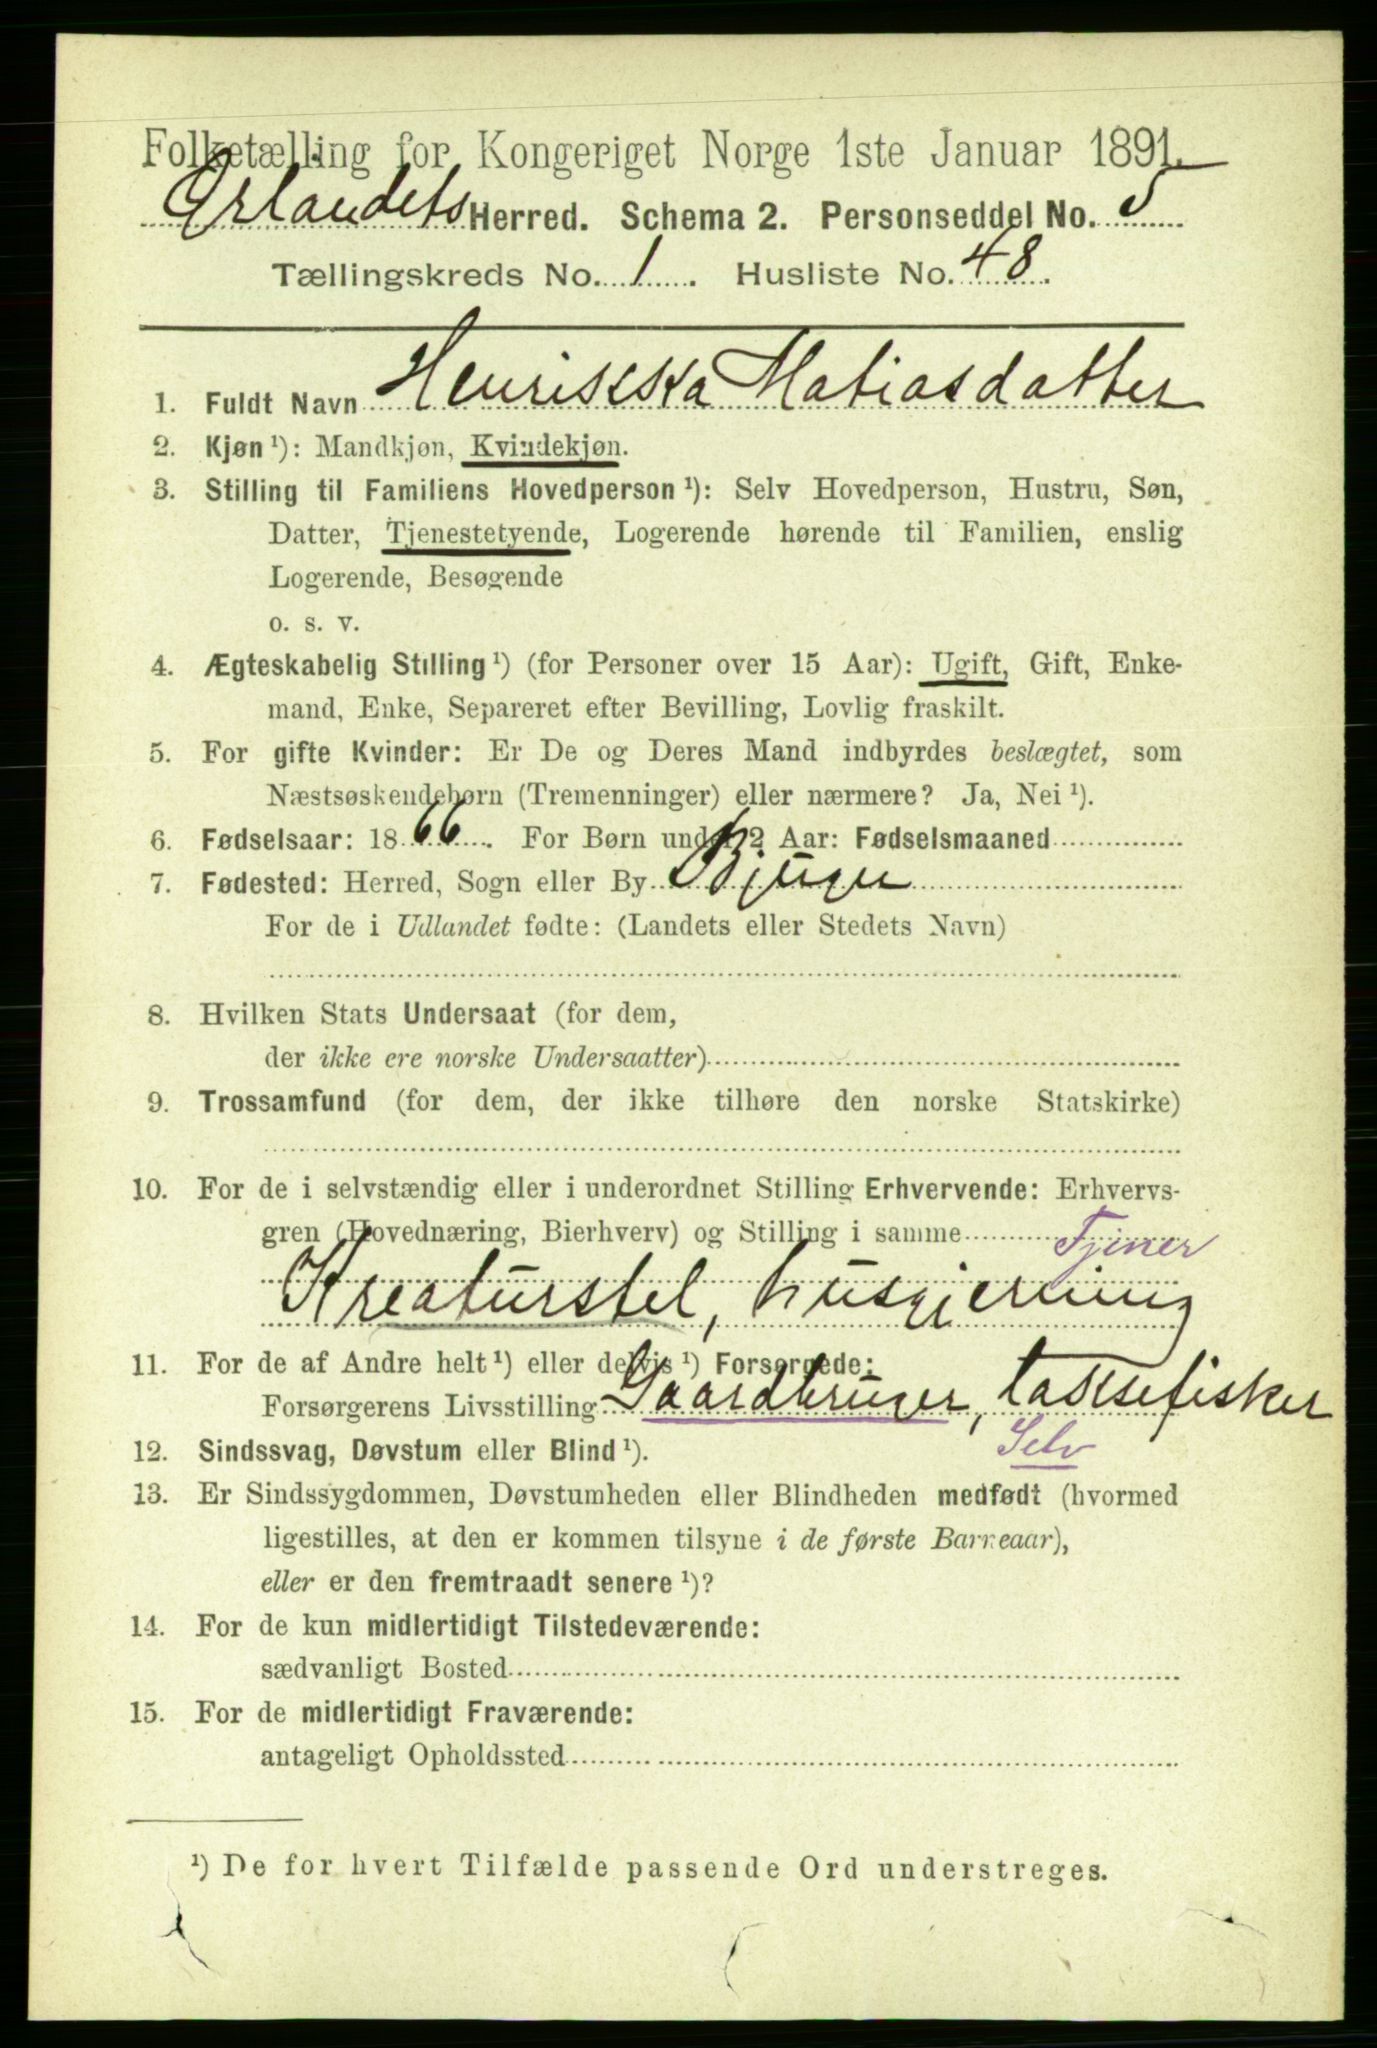 Folketælling for Kongeriget Norge 1ste Januar 1891.
Ørlandets Herred. Schema 2. Personseddel No. 5
Tællingskreds No. 1. Husliste No. 48.
1. Fuldt Navn Henrikka Matiasdatter
2. Kjøn ¹): Mandkjøn, Kvindekjøn.
3. Stilling til Familiens Hovedperson ¹): Selv Hovedperson, Hustru, Søn,
Datter, Tjenestetyende, Logerende hørende til Familien, enslig
Logerende, Besøgende
o. s. v.
4. Ægteskabelig Stilling ¹) (for Personer over 15 Aar): Ugift, Gift, Enke-
mand, Enke, Separeret efter Bevilling, Lovlig fraskilt.
5. For gifte Kvinder: Er De og Deres Mand indbyrdes beslægtet, som
Næstsøskendebørn (Tremenninger) eller nærmere? Ja, Nei ¹).
6. Fødselsaar: 1866. For Børn under 2 Aar: Fødselsmaaned
7. Fødested: Herred, Sogn eller By Bjugn
For de i Udlandet fødte: (Landets eller Stedets Navn)
8. Hvilken Stats Undersaat (for dem,
der ikke ere norske Undersaatter)
9. Trossamfund (for dem, der ikke tilhøre den norske Statskirke)
10. For de i selvstændig eller i underordnet Stilling Erhvervende: Erhvervs-
gren (Hovednæring, Bierhverv) og Stilling i samme Tjener
Kreaturstel, husgjerning
11. For de af Andre helt ¹) eller delvis ¹) Forsørgede:
Forsørgerens Livsstilling Gaardbruger, laksefisker
12. Sindssvag, Døvstum eller Blind ¹). Selv
13. Er Sindssygdommen, Døvstumheden eller Blindheden medfødt (hvormed
ligestilles, at den er kommen tilsyne i de første Barneaar),
eller er den fremtraadt senere ¹)?
14. For de kun midlertidigt Tilstedeværende:
sædvanligt Bosted
15. For de midlertidigt Fraværende:
antageligt Opholdssted
¹) De for hvert Tilfælde passende Ord understreges.